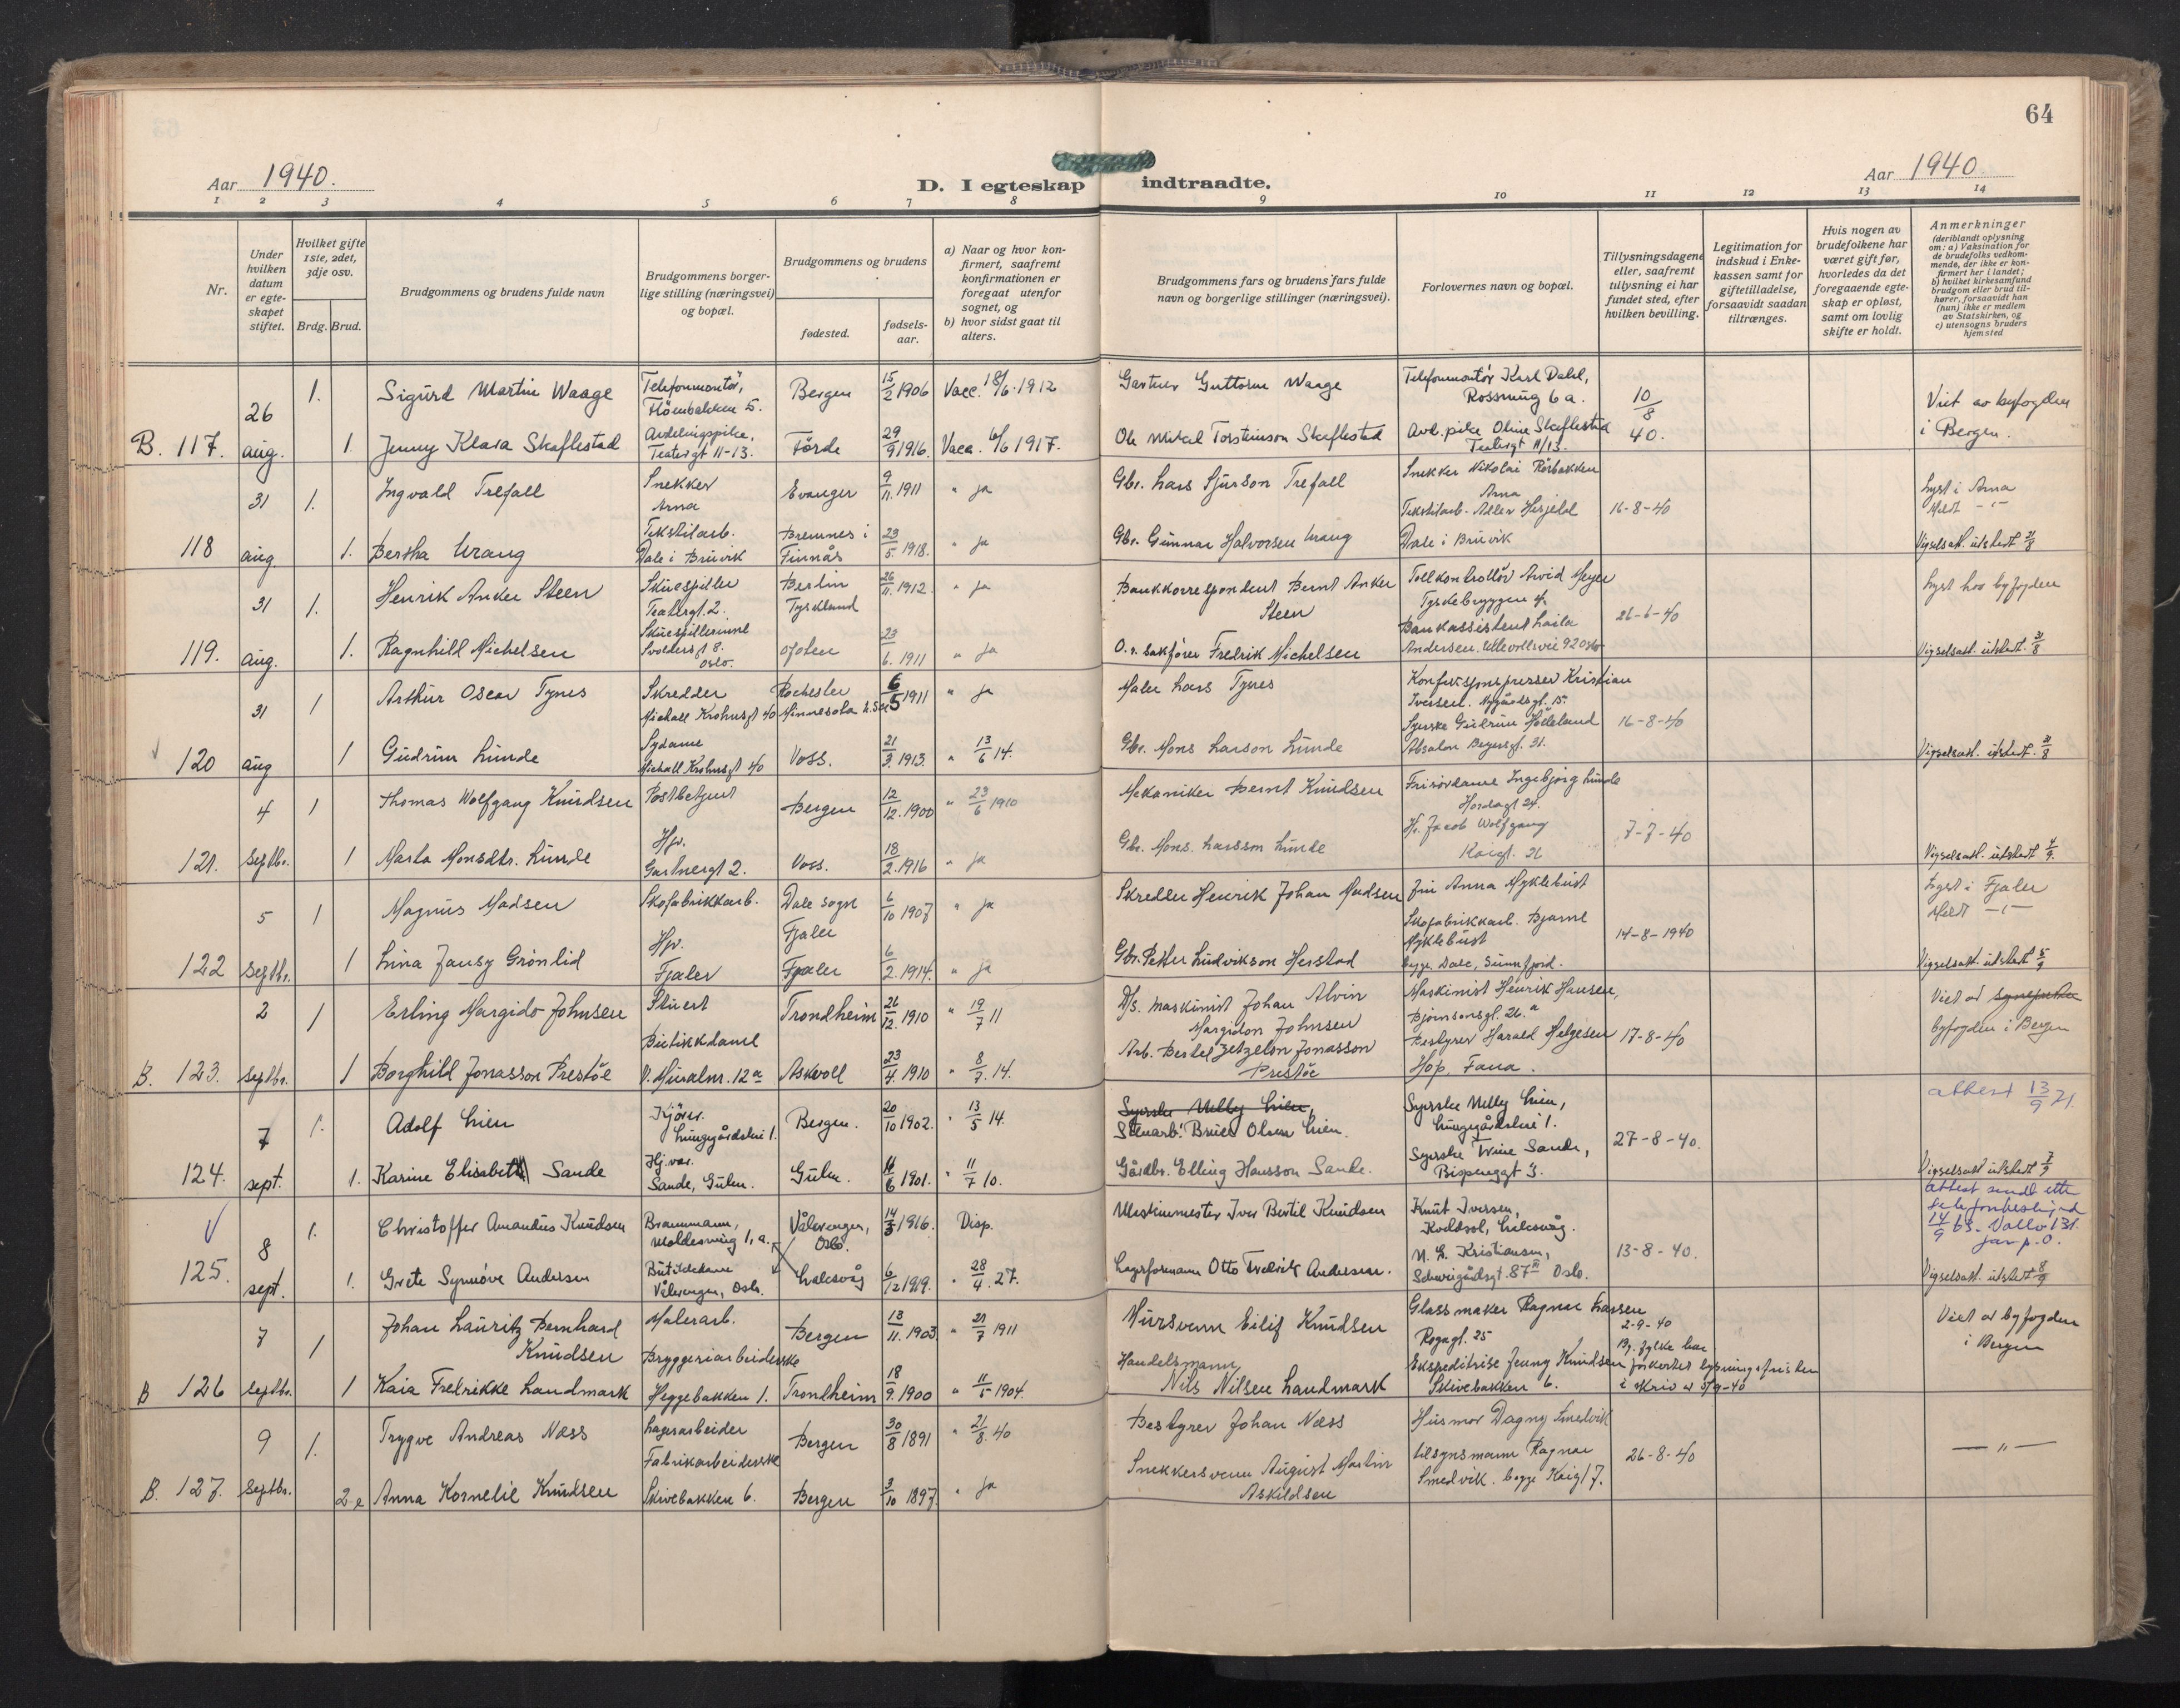 64
Aar 1940.
D. I egteskap indtraadte.
Aar 1940
1 2 3 4 5 6 7 8 9 10 11 12 13 14
Nr.
Under hvilken datum er egteskapet stiftet.
Hvilket gifte 1ste, 2det, 3dje osv.
Brdg. Brud.
Brudgommens og brudens fulde navn
Brudgommens borgerlige stilling (næringsvei) og bopæl.
Brudgommens og brudens
fødested.
fødselsaar.
a) Naar og hvor konfirmert, saafremt konfirmationen er foregaat utenfor sognet, og
b) hvor sidst gaat til alters.
Brudgommens fars og brudens fars fulde navn og borgerlige stillinger (næringsvei).
Forlovernes navn og bopæl.
Tillysningsdagene eller, saafremt tillysning ei har fundet sted, efter hvilken bevilling.
Legitimation for indskud i Enkekassen samt for giftetilladelse, forsaavidt saadan tiltrænges.
Hvis nogen av brudefolkene har været gift før, hvorledes da det foregaaende egteskap er opløst, samt om lovlig skifte er holdt.
Anmerkninger
(deriblandt oplysning om: a) Vaksination for de brudefolks vedkommende, der ikke er konfirmert her i landet; b) hvilket kirkesamfund brudgom eller brud tilhører, forsaavidt han (hun) ikke er medlem av Statskirken, og c) utensogns bruders hjemsted
26 1. Sigurd Martin Waage Telefonmontör, Flöenbakken 5. Bergen 15/2 1906 Vacc. 18/6.1912 Gartner Guttorm Waage Telefonmontör Karl Dahl, 6 a. 10/8 40. Viet av byfogden i Bergen.
B. 117. aug. 1. Jenny Klara Skaflestad Avdelingspike, Teatergt 11-13. Förde 29/9 1916. Vacc. 6/6 1917. Ole Mikal Torsteinson Skaflestad Avd. pike Oline Skaflestad Teatergt 11/13.
31 1. Ingvald Trefall Snekker Arna Evanger 9/11. 1911 " ja Gbr. Lars Sjurson Trefall Snekker Nikolai Rörbakken Arna 16-8-40 Lyst i Arna Meldt -"-
118 aug 1. Bertha Urang Tekstilarb. Dale i Bruvik Bremnes i Finnås 23/5. 1918. " ja Gbr. Gunnar Halvorsen Urang Tekstilarb. Dale i Bruvik Vigselsatt. utstedt 31/8
31 1. Henrik Anker Steen Skuespiller Teatergt. 2. Berlin Tyskland 26/11. 1912. " ja Bankkorrespondent Bernt Anker Steen Tollkontrollör Arvid Meyer Tyskebryggen 4. 26-6-40 Lyst hos byfogden
119. aug. 1. Ragnhild Michelsen Skuespillerinne Svoldersgt 8. Oslo. Ofoten 23/6. 1911 " ja O.r. sakförer Fredrik Michelsen Bankassistent Laila Andersen. Ullevollsvei 92 Oslo Vigselsatt. utstedt. 31/8
31 1 Arthur Oscar Tynes Skredder Michael Krohnsgt 40 Rochester Minnesota U.S.A. 6/5 1911 " ja Maler Lars Tynes Konfeksjonspresser Kristian Iversen. Nygårdsgt. 15. 16-8-40
120 aug 1 Gudrun Lunde Sydame Michall Krohnsgt 40 Voss. 21/3. 1913. " 13/6 14. Gbr. Mons Larson Lunde Syerske Gudrun Absalon Beyersgt. 31. Vigselsatt. utstedt. 31/8
4 1 Thomas Wolfgang Knudsen Postbetjent Bergen 12/12. 1900 " 23/6 1910 Mekaniker Bernt Knudsen Frisördame Ingebjörg Lunde Hordagt 24. 7-7-40
121. Septbr. 1 Marta Monsdtr. Lunde Hjv. Gartnergt 2. Voss. 18/2. 1916 " ja Gbr. Mons Larsson Lunde Hr. Jacob Wolfgang Kaigt. 26 Vigselsatt. utstedt 4/9.
5 1 Magnus Madsen Skofabrikkarb. Dale sogn Fjaler 6/10 1907 " ja Skredder Henrik Johan Madsen Fru Anna Myklebust 14-8-1940 Lyst i Fjaler Meldt -"-
122 Septbr. 1 Lina Jansy Grönlid Hjv. Fjaler Fjaler 6/2. 1914. " ja Gbr. Petter Ludvikson Herstad Skofabrikkarb. Bjarne Myklebust begge Dale, Sunnfjord. Vigselsatt. utstedt 5/9
2 1 Erling Margido Johnsen Stuert Trondheim 26/12. 1910 " 19/7 11 D/s. maskinist Johan Alvin Margidon Johnsen Maskinist Henrik Hansen, Björnsonsgt. 26.a 17-8-40 Viet av byfogden i Bergen
B. 123. Septbr. 1 Borghild Jonasson Prestöe Butikkdame V. Muralm. 12 a Askvoll 23/4. 1910 " 8/7. 14. Arb. Bertel Jonasson Prestöe Bestyrer Harald Helgesen Hop. Fana.
attest 13/9 71.
7 1. Adolf Lien Kjörer. Lungegårdslien 1. Bergen. 20/10 1902. " 13/5 14. Syerske Melby Lien, Stenarb. Olsen Lien. Syerske Melby Lien, 1. 27-8-40.
124. sept. 1. Karine Elisabeth Sande Hj.vær. Sande, Gulen. Gulen. 6 1901. " 11/7 10. Gårdbr. Elling Hansson Sande. Syerske Trine Sande, Bispenggt 3. Vigselsatt utstedt 7/9
8 1. Christoffer Amandus Knudsen Brannmann, 1, a. Vålerengen, Oslo. 14/3 1916. Disp. Maskinmester Iver Bertil Knudsen Knut Iversen, Laksevåg. 13-8-40. attest sendt etter 14/9
125. sept. 1. Grete Synnöve Andersen Vålerengen, Oslo. Laksevåg 6/12 1919. " 28/4. 27. Lagerformann Otto Fredrik Andersen. Kristiansen, Schweigårdsgt. 87 Oslo. Vigselsatt. utstedt 8/9
7 1 Johan Lauritz Bernhard Knudsen Malerarb. Bergen 13/11. 1903 " 21/7 1911 Mursvenn Eilif Knudsen Glassmaker Ragnar Larsen 25 2-9-40 Viet av byfogden i Bergen
B 126 Septbr. 1 Kaia Fredrikke Landmark Bryggeriarbeiderske Heggebakken 1. Trondheim 18/9. 1900 " 11/5 1904. Handelsmann Nils Nilsen Landmark Ekspeditrise Jenny Knudsen Skivebakken 6. forkortet lysningsfristen i skriv av 5/9-40
9 1. Trygve Andreas Næss Lagerarbeider Bergen 30/8 1891 " 21/8. 40 Bestyrer Johan Næss Husmor Dagny Smedvik 26-8-40 — " —
B. 127. Septbr. 2 e Anna Kornelie Knudsen Fabrikarbeiderske Skivebakken 6. Bergen 3/10 1897. " ja Snekkersvenn August Martin Askildsen tilsynsmann Ragnar Smedvik. begge Kaigt 7.